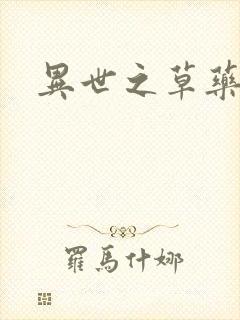 異世之草藥
羅馬什娜